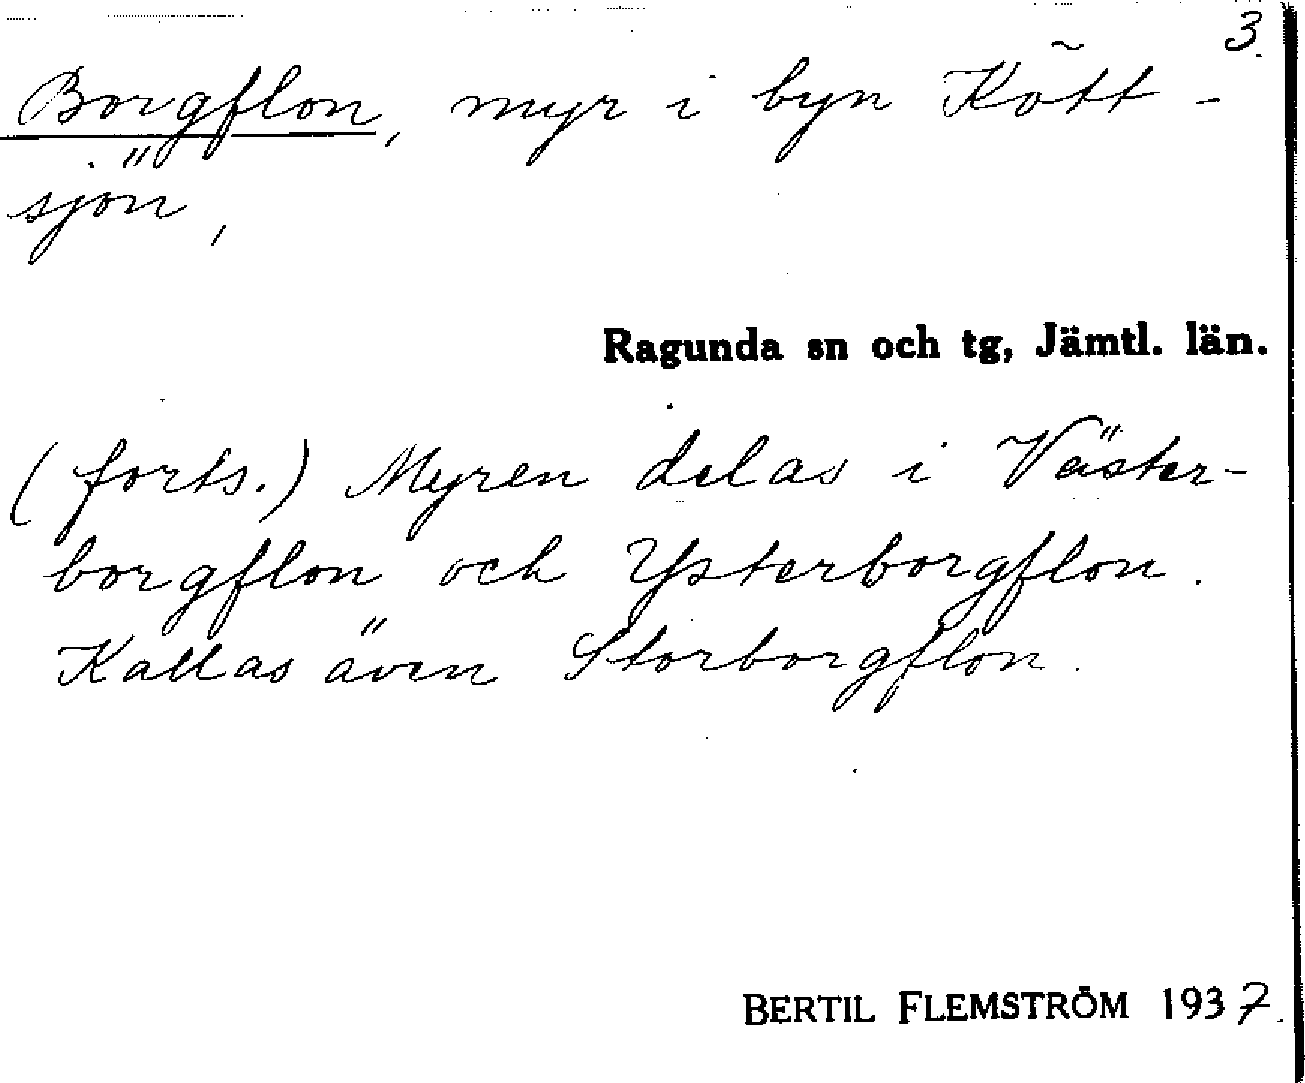 3.
Borgflon, myr i byn Kött-
sjön,
Ragunda sn och tg, Jämtl. län.
(forts.) Myren delas i Väster-
borgflon och Ysterborgflon.
Kallas även Storborgflon.
BERTIL FLEMSTRÖM 1937.